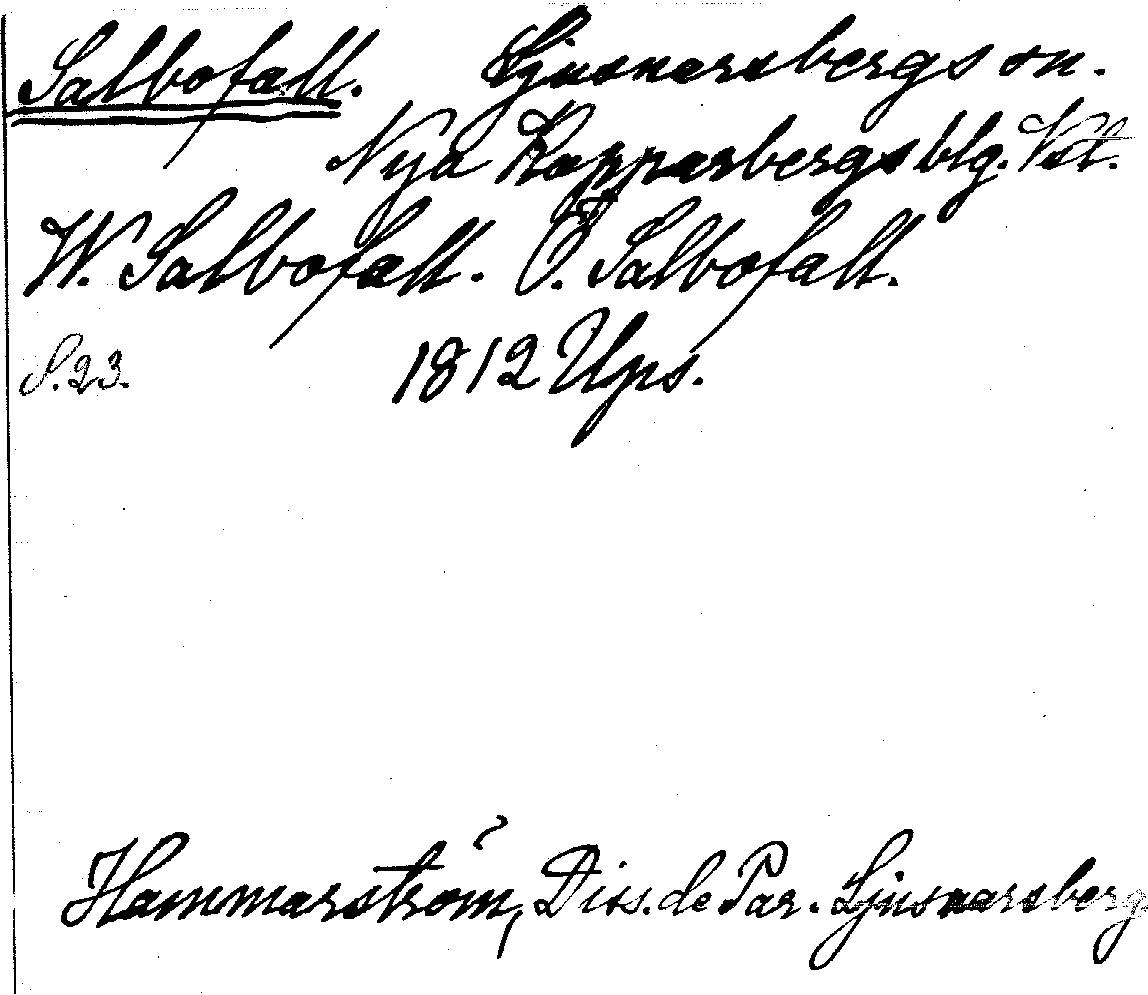 Salbofall. Ljusnarsbergs sn.
Nya Kopparbergs blg. Vstl.
W. Salbofall. Ö. Salbofall.
S. 23. 1812 Ups.
Hammarström, Diss. de Par. Ljusnarsberg